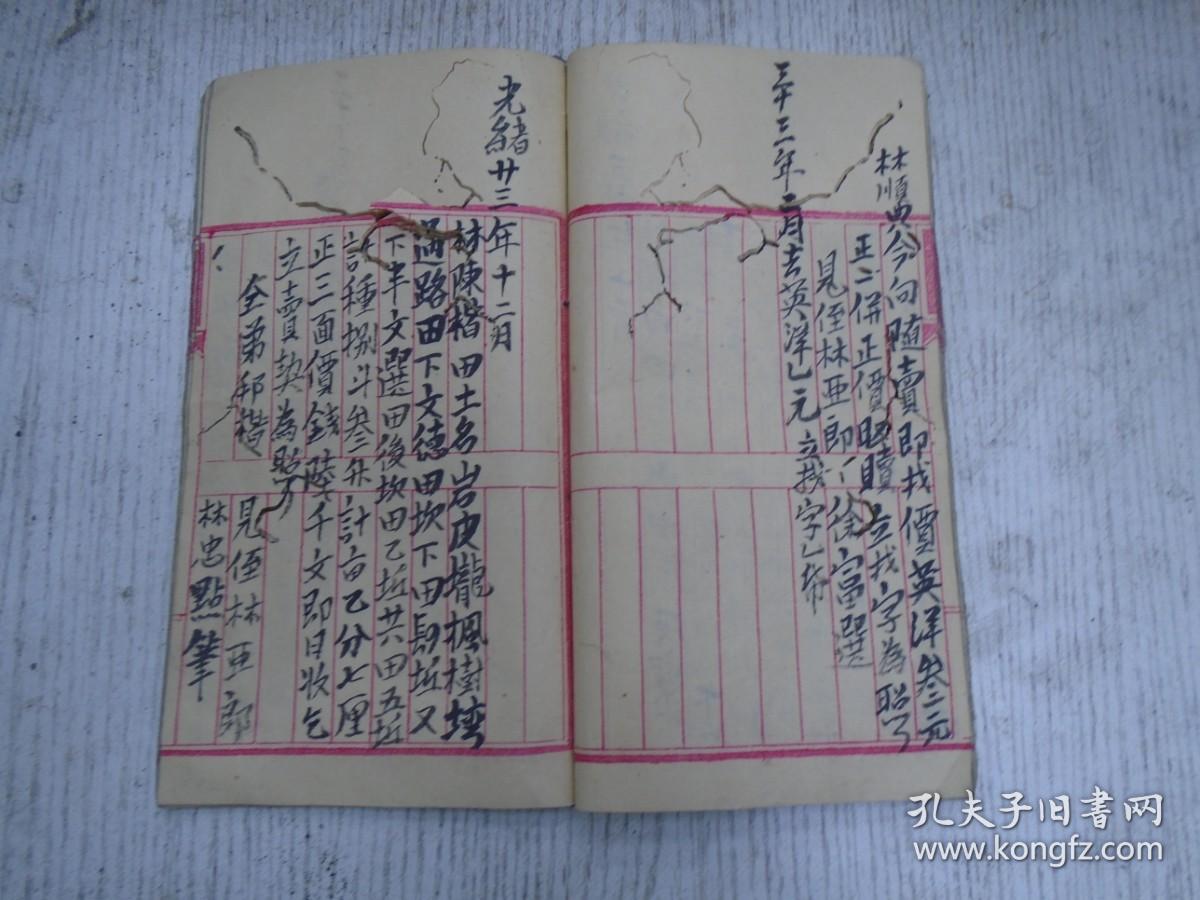 林順典今向隨賣即找價英洋叁元
正二併正價 贖立找字為照
見侄林亜郎 徐富選
三十三年二月去英洋乙元立找字乙帋
光緒廿三年十二月
林陳楷田土名岩皮壠楓樹垮
過路田下文德田坎下田 坵又
下半文選田後坎田乙坵共田五坵
計種捌斗叁升計亩乙分七厘
正三面價錢陸千文即日收乞
立賣契為照
仝弟邦楷
見侄林亜郎
林忠點筆
孔夫子旧书网
www.kongfz.com